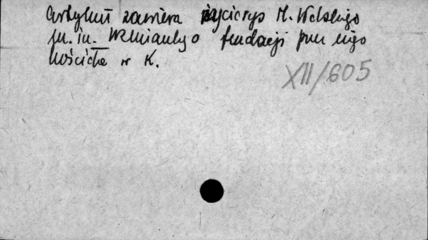 Artykuł zawiera życiorys M. Wolskiego
m.in. wzmianky o fundacji przez niego
kościoła w K.
XII/605